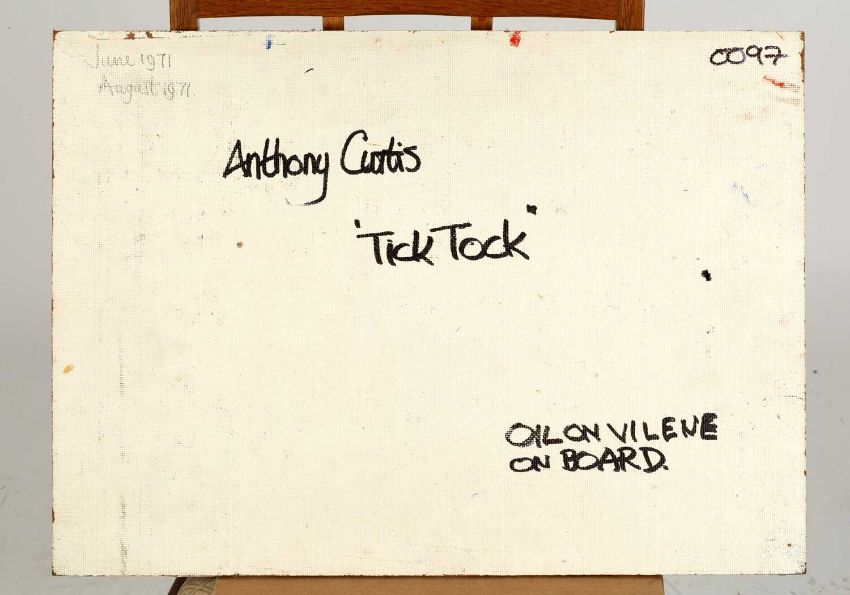 June 1971
August 1971.
0097
Anthony Curtis
"Tick Tock"
OIL ON VILENE
ON BOARD.